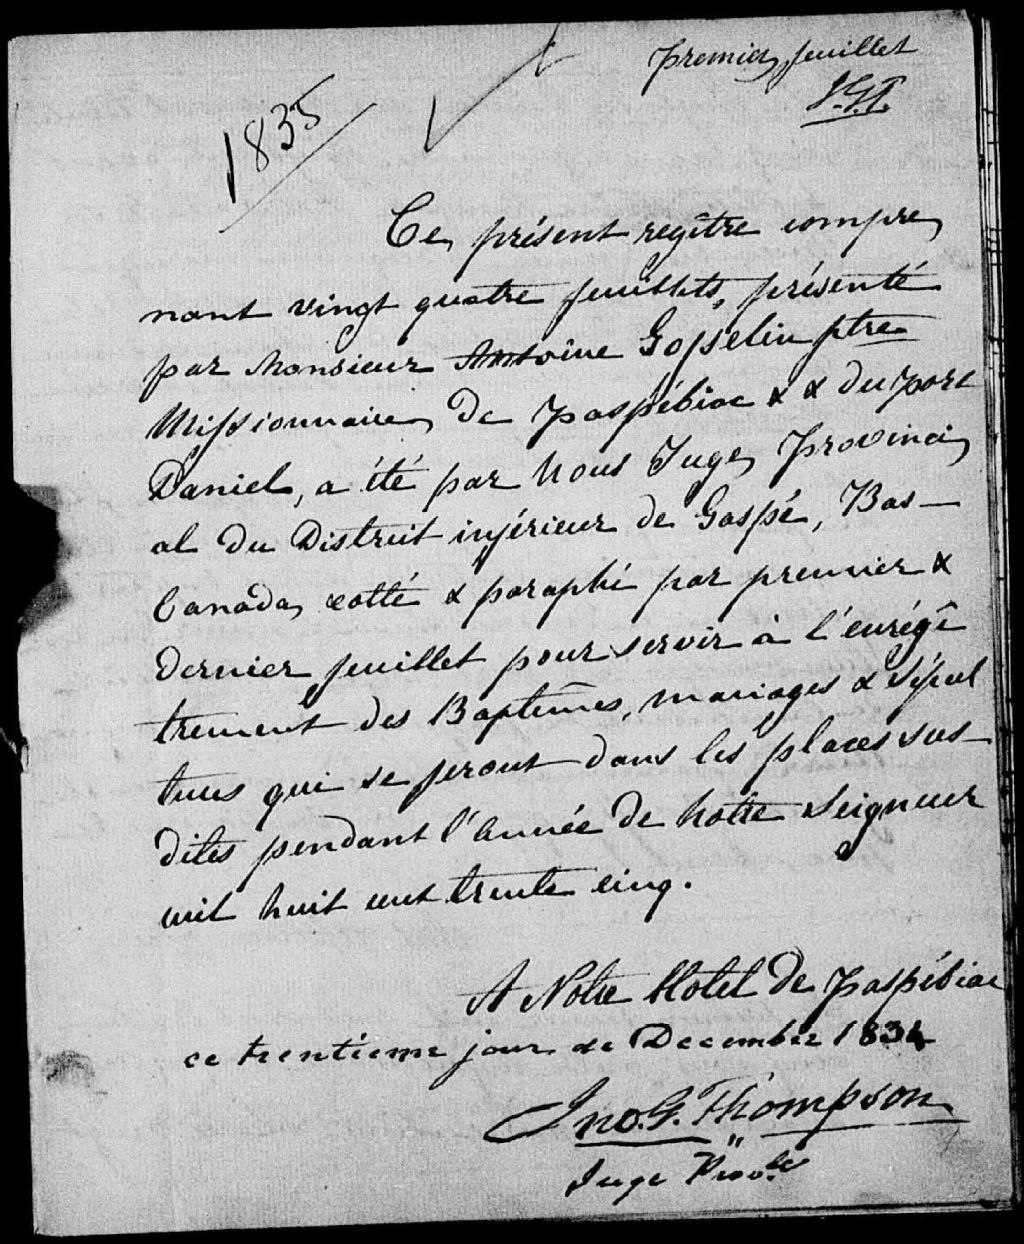 premier feuillet
J.G.T.
1835
Ce présent regître compre
nant vingt quatre feuillets, présenté
par Monsieur Antoine Gosselin ptre
Missionnaire de Paspébiac & & du port
Daniel, a été par Nous Juge Provinci
al du District inférieur de Gaspé, Bas-
Canada, cotté & paraphé par premier &
dernier feuillet pour servir à l'enrégî
trement des Baptêmes, mariages & Sépul
tures qui se feront dans les places sus-
dites pendant l'année de Notre Seigneur
mil huit cent trente cinq.
A Notre Hotel de Paspébiac
ce trentieme jour de Decembre 1834
Jno. G. Thompson
Juge Prov.le